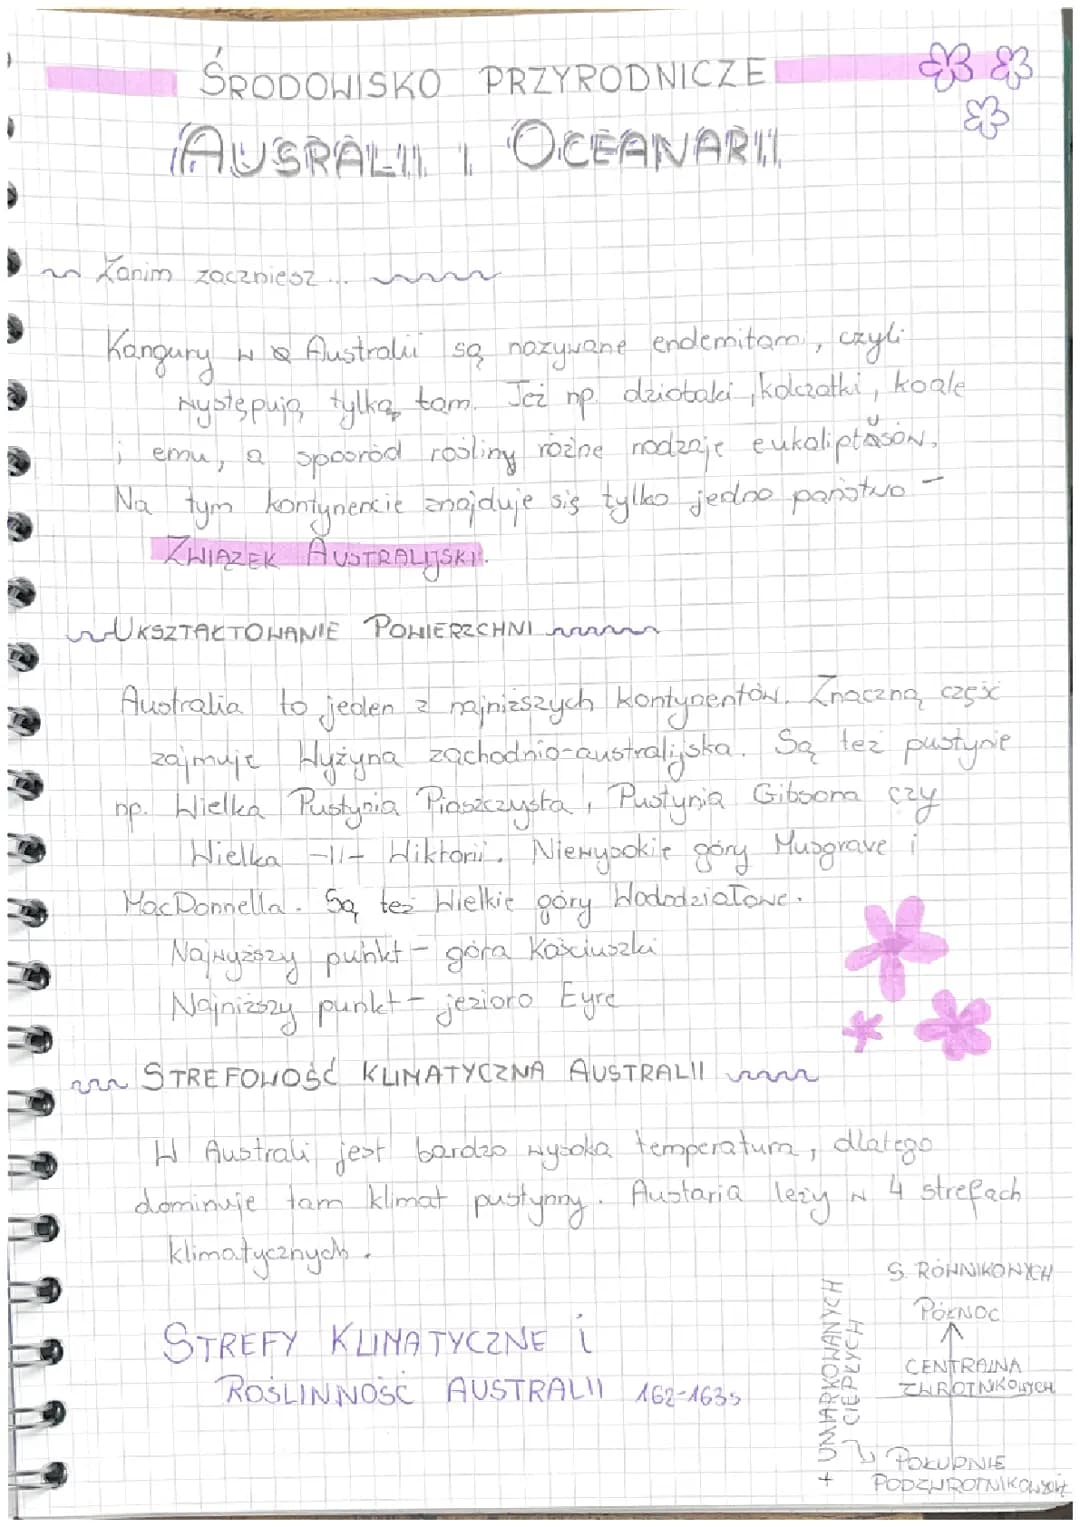 ŚRODOWISKO PRZYRODNICZE
AUSRALII I OCEANARII
Zanim zaczniesz...
Kangury w Australii są nazywane endemitami, czyli
występują tylko tam. Jeż np. dziobaki, kolczatki, koale
i emu, a spooród rośliny różne rodzaje eukaliptusów.
Na tym kontynencie znajduje się tylko jedno państwo -
ZWIĄZEK AUSTRALIJSKI.
UKSZTAŁTOWANIE POWIERZCHNI
Australia to jeden z najniższych kontynentów. Znaczną część
zajmuje Wyżyna zachodnio-australijska. Są też pustynie
np. Wielka Pustynia Piaszczysta, Pustynia Gibsona czy
Wielka -11- Wiktorii. Niewysokie góry Musgrave i
MacDonnella. Są też Wielkie góry Wododziałowe.
Najwyższy punkt - góra Kościuszki
Najniższy punkt - jezioro Eyre
STREFOWOŚĆ KLIMATYCZNA AUSTRALII
W Australi jest bardzo wysoka temperatura, dlatego
dominuje tam klimat pustynny. Austaria leży w 4 strefach
klimatycznych.
STREFY KLIMATYCZNE i
ROŚLINNOŚĆ AUSTRALII 162-163s
S. RÓWNIKOWYCH
PÓŁNOC
CENTRALNA
ZWROTNIKOWYCH
POŁUDNIE
PODZWROTNIKOWYCH
+ UMIARKOWANYCH
CIEPŁYCH